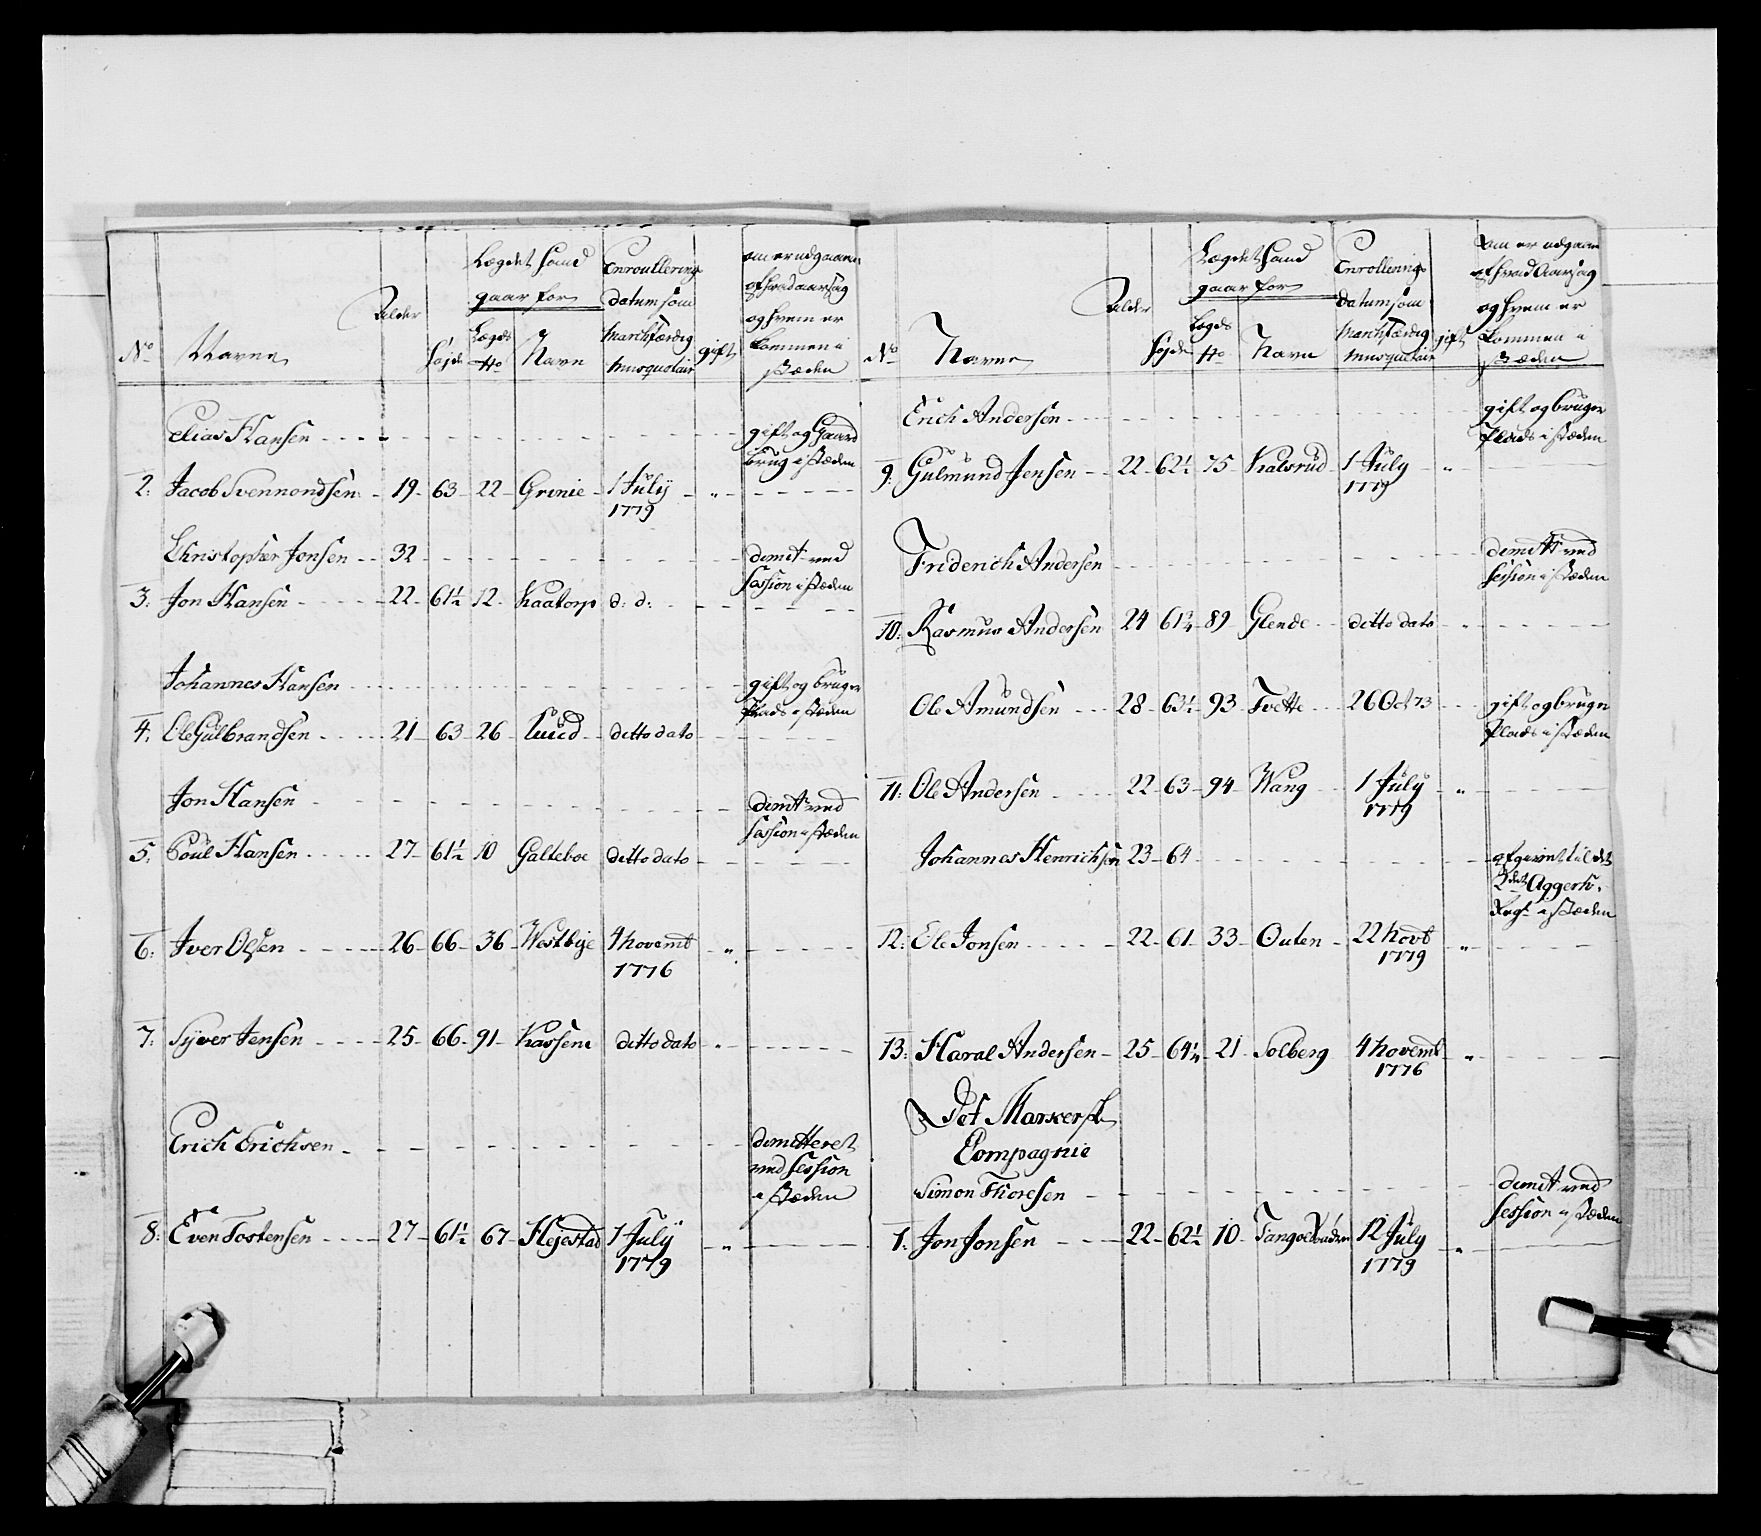 No
Navne
Alder
Højde
Lægdet hand
gaar for
Lægds
No
Navn
Enroullering
datum som
Marchfærdig
Musquetair
gift
om er udgaaen
af hvad aarsag
og hvem er
kommen i
stæden
Elias Hansen
gift og Gaard
brug i stæden
2: Jacob Svennondsen 19 63 22 Grinie 1 July
1779
Christopher Jonsen 32 dimit ved
Session i stæden
3: Jon Hansen 22 61½ 12 Kaatorp d: d:
Johannes Hansen gift og bruger
Plads i stæden
4: Ole Gulbrandsen 21 63 26 Luud ditto dato
Jon Hansen dimit ved
Session i stæden
5: Poul Hansen 27 61½ 10 Galteboe ditto dato
6: Iver Olsen 26 66 36 Westbye 4 Novemb
1776
7: Syver Jensen 25 66 91 Kassene ditto dato
Erich Erichsen dimitteret
ved Session
i stæden
8: Even Tostensen 27 61½ 67 Hejestad 1 July
1779
No
Navne
Alder
Højde
Lægdet hand
gaar for
Lægds
No
Navn
Enrollering
datum som
Marchfærdig
Musquetair
gift
om er udgaaen
af hvad Aarsag
og hvem er
kommen i
stæden
Erich Andersen gift og bruger
Plads i stæden
9: Gulmund Jensen 22 62½ 75 Kalsrud 1 July
1779
Friderich Andersen dimitt ved
Session i stæden
10: Rasmus Andersen 24 61¾ 89 Glende ditto dato
Ole Amundsen 28 63½ 93 Tvette 26 Oct 73 gift og bruger
Plads i stæden
11: Ole Andersen 22 63 94 Wang 1 July
1779
Johannes Henrichsen 23 64 afgivet til det
2det Aggersh.
Regt i stæden
12: Ole Jonsen 22 61 33 Outen 22 Novb
1779
13: Haral Andersen 25 64¼ 21 Solberg 4 Novemb
1776
Det Markersk
Compagnie
Simon Thoresen dimit ved
Session i stæden
1: Jon Jonsen 22 62½ 10 12 July
1779